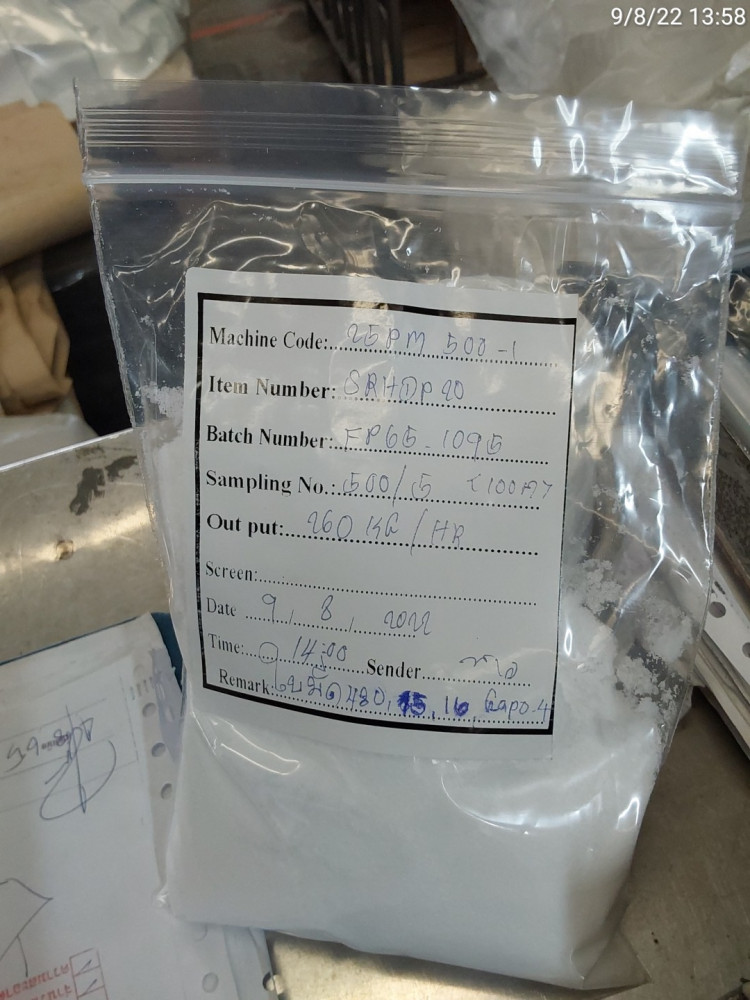 9/8/22 13:58
Machine Code: 25PM 500-1
Item Number: SRHDP20
Batch Number: FP65-1095
Sampling No.: 500/5
Out put: 260 KG/HR
Screen:
Date 9, 8, 2022
Time: 14:00 Sender
Remark: 480, 15, 16,